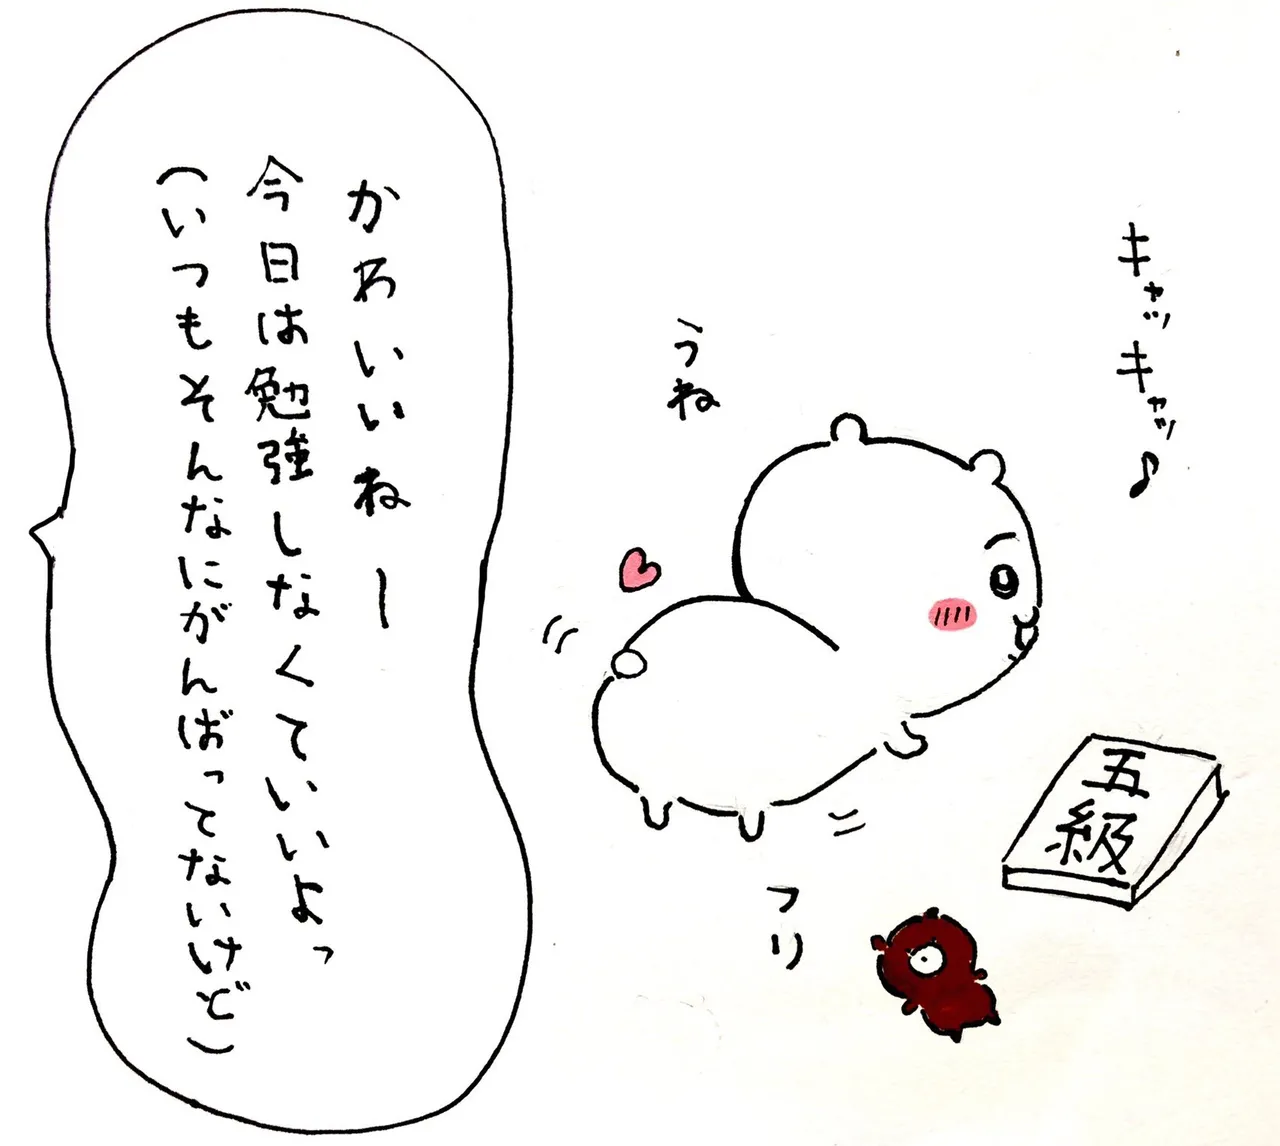 キャッキャッ♪
うね
かわいいねー
今日は勉強しなくていいよっ
(いつもそんなにがんばってないけど)
五級
フリ